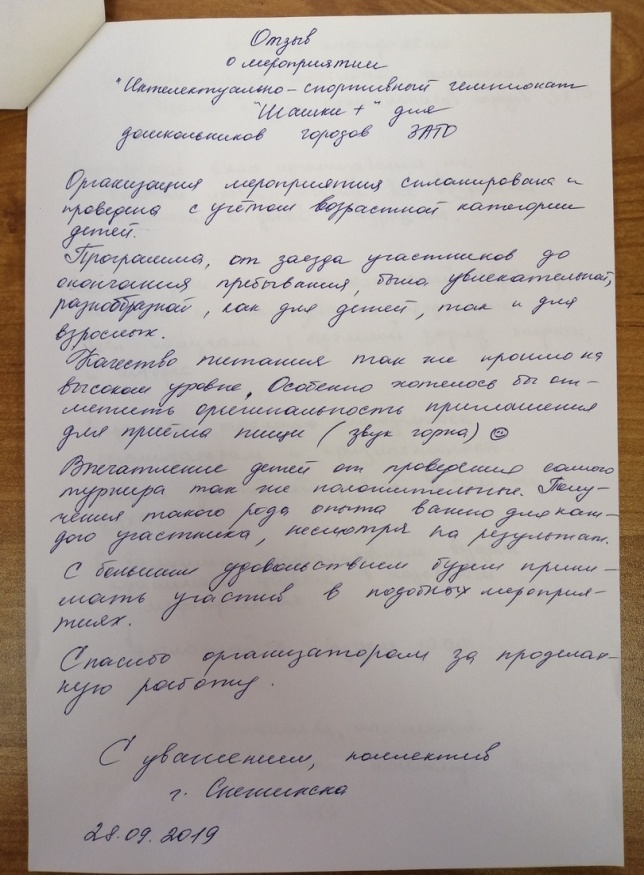 Отзыв
о мероприятии
"Интелектуально-спортивный чемпионат
"Шашки +" для
дошкольников городов ЗАТО
Организация мероприятия спланирована и
проведена с учётом возрастной категории
детей.
Программа, от заезда участников до
окончания пребывания, была увлекательной,
разнобразной, как для детей, так и для
взрослых.
Качество питания так же прошло на
высоком уровне. Особенно хотелось бы от-
метить оригинальность приглашения
для приёма пищи (звук горна) ☺
Впечатление детей от проведения самого
турнира так же положительные. Полу-
чения такого рода опыта важно для каж-
дого участника, несмотря на результат.
С большим удовольствием будем прини-
мать участие в подобных мероприя-
тиях.
Спасибо организаторам за проделан-
ную работу.
С уважением, коллектив
г. Снежинска
28.09.2019